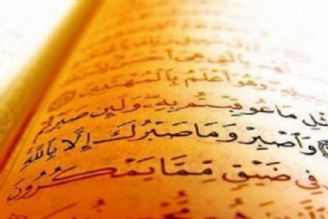 بِالَّتِي هِيَ أَحْسَنُ
وَهُوَ أَعْلَمُ بِالْمُهْتَدِينَ
مَا عُوقِبْتُم بِهِ وَلَئِن صَبَرْتُمْ
وَاصْبِرْ وَمَا صَبْرُكَ إِلَّا بِاللَّهِ
فِي ضَيْقٍ مِّمَّا يَمْكُرُونَ